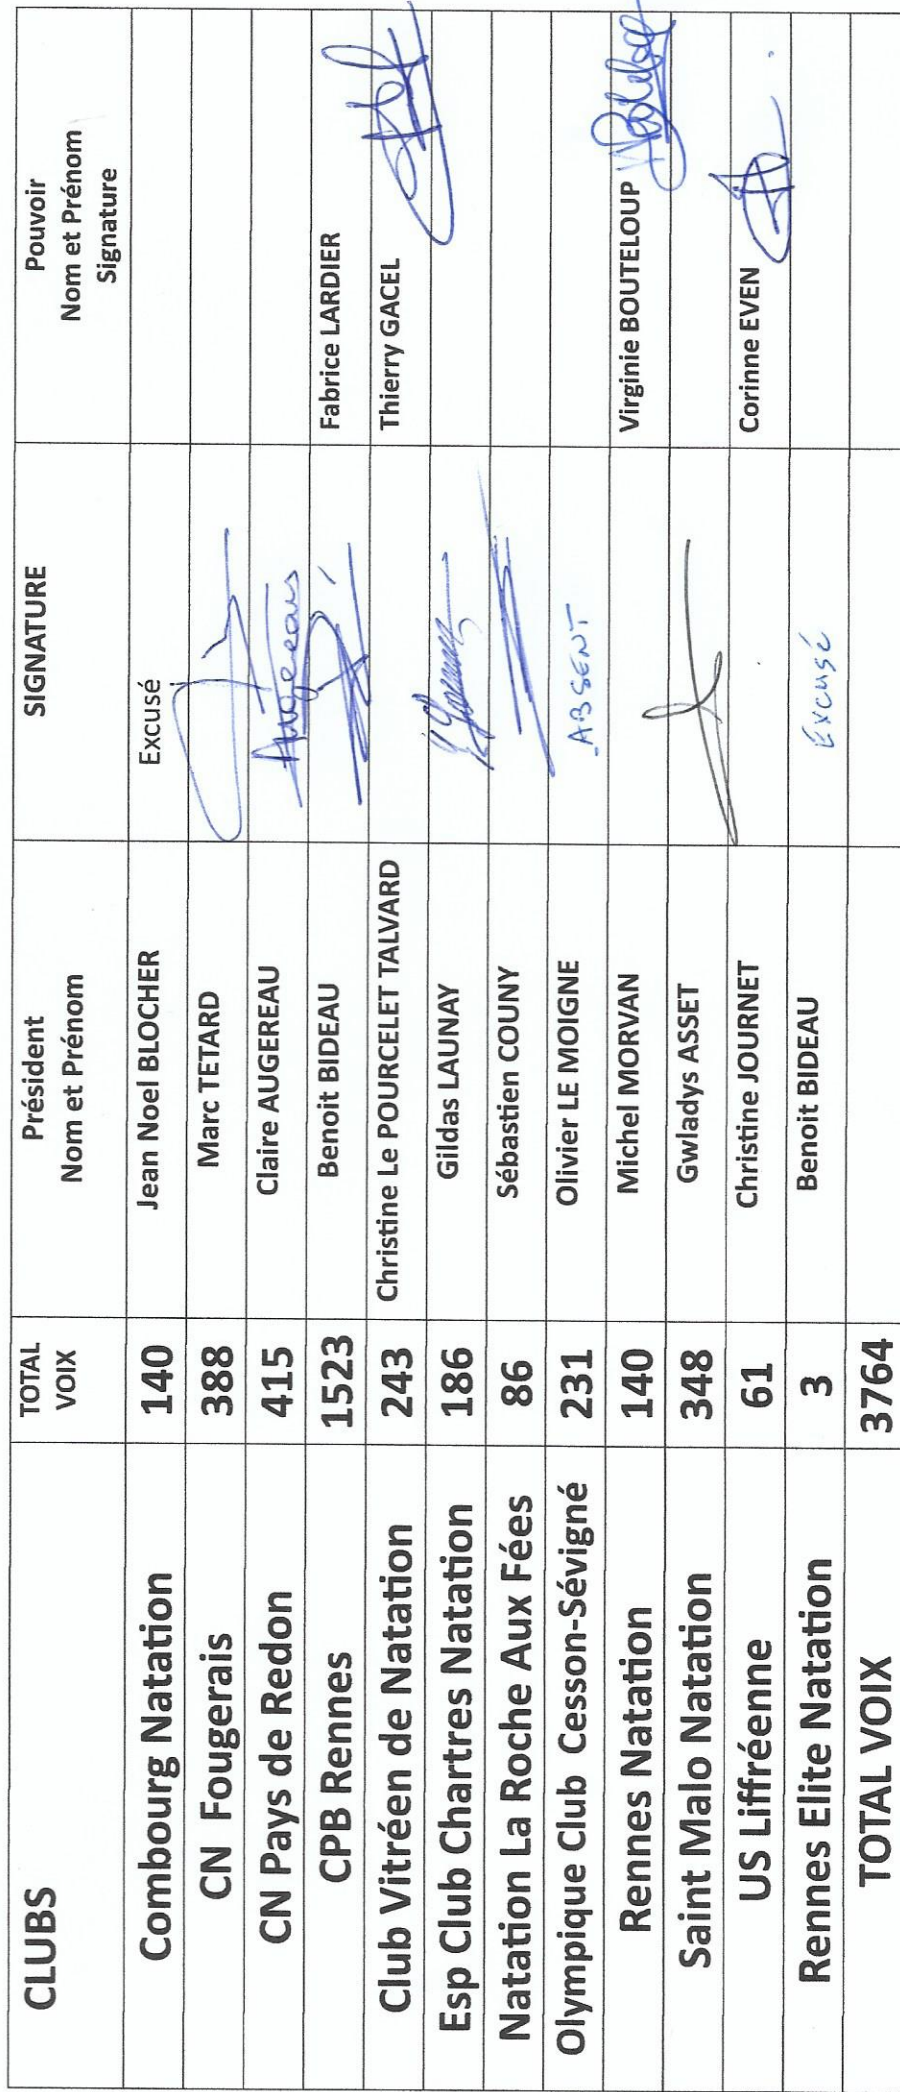 CLUBS
TOTAL
VOIX
Président
Nom et Prénom
SIGNATURE
Pouvoir
Nom et Prénom
Signature
Combourg Natation 140 Jean Noel BLOCHER Excusé
CN Fougerais 388 Marc TETARD
CN Pays de Redon 415 Claire AUGEREAU Augereau
CPB Rennes 1523 Benoit BIDEAU Fabrice LARDIER
Club Vitréen de Natation 243 Christine Le POURCELET TALVARD Thierry GACEL
Esp Club Chartres Natation 186 Gildas LAUNAY
Natation La Roche Aux Fées 86 Sébastien COUNY
Olympique Club Cesson-Sévigné 231 Olivier LE MOIGNE ABSENT
Rennes Natation 140 Michel MORVAN Virginie BOUTELOUP
Saint Malo Natation 348 Gwladys ASSET
US Liffréenne 61 Christine JOURNET Corinne EVEN
Rennes Elite Natation 3 Benoit BIDEAU Excusé
TOTAL VOIX 3764